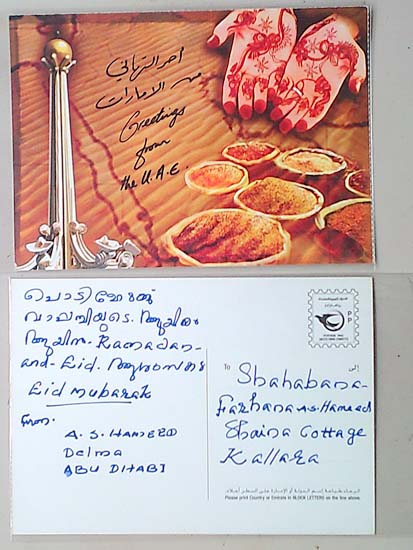 أحر التهاني
من الامارات
Greetings
from
the U.A.E.
വാപ്പിയുടെ
Ramadan-
and-Eid.
Eid mubarak
From.
A. S. HAMEED
Delma
ABU DHABI
P P
To إلى
Shahabana-
Farhana A.S. Hameed
Shaina Cottage
Kallara
الرجاء طباعة إسم الدولة أو الإمارة على السطر أعلاه.
Please print Country or Emirate in BLOCK LETTERS on the line above.